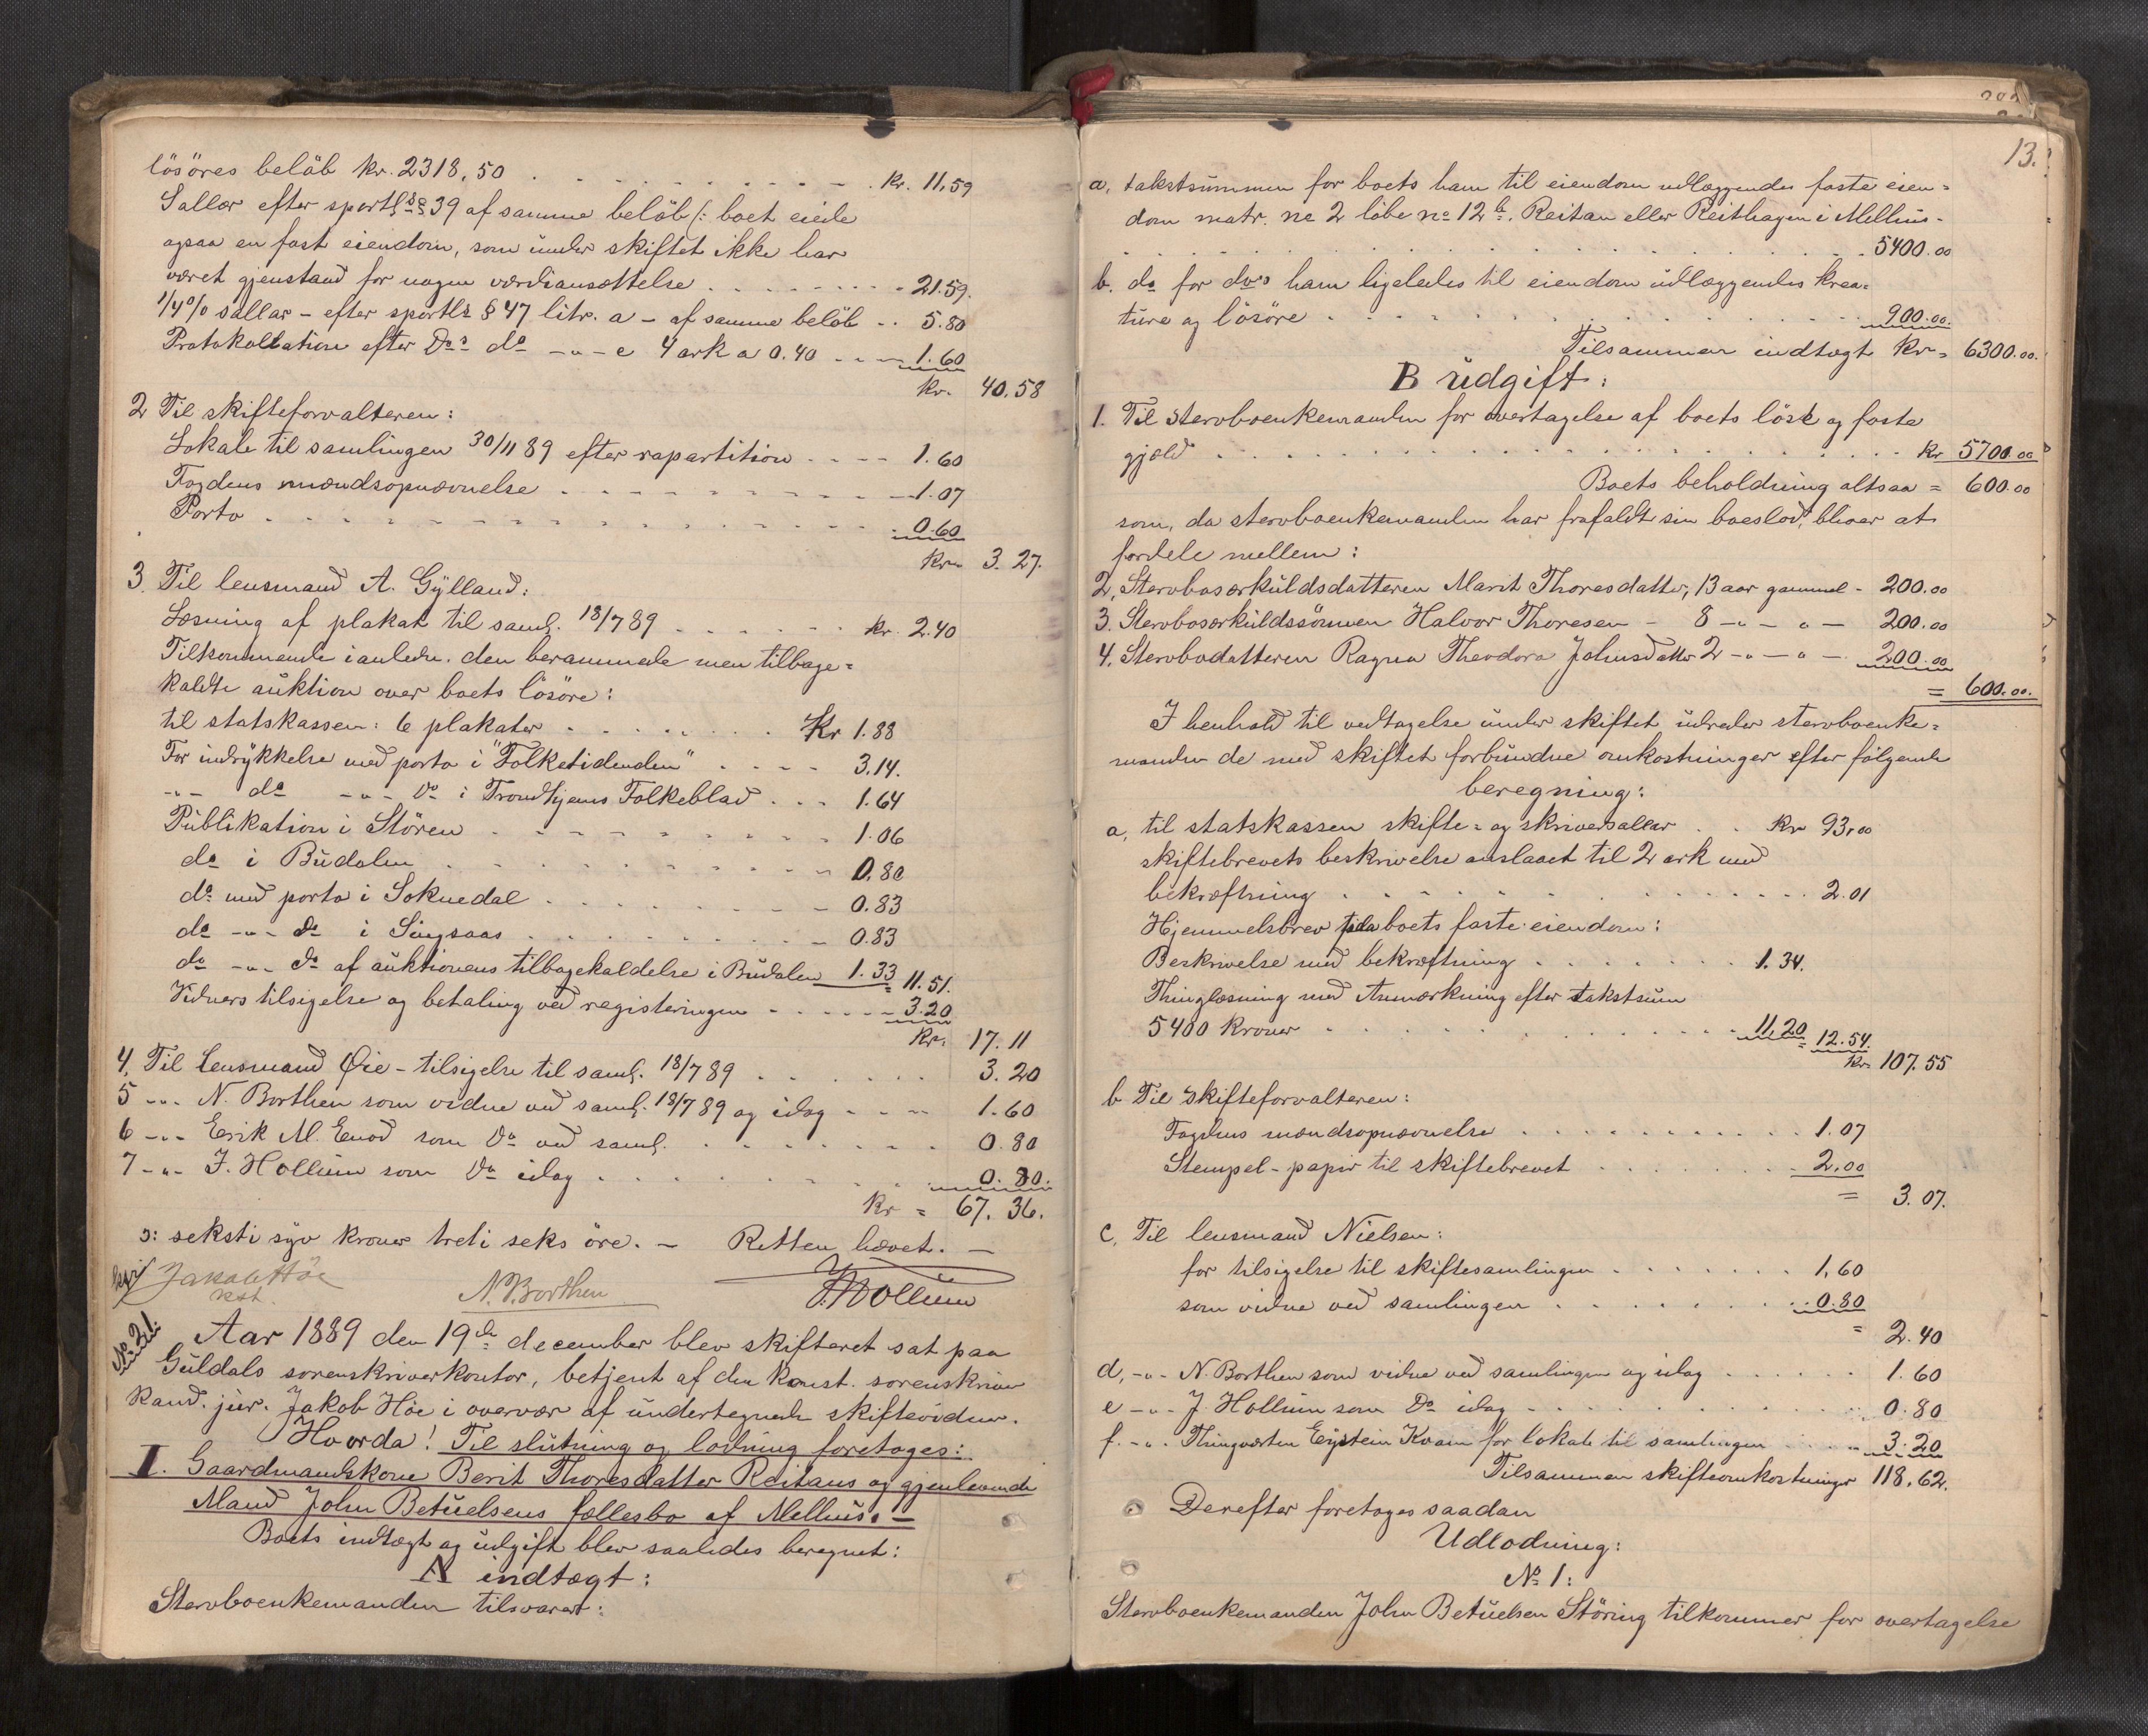 lösöres beløb kr. 2318,50 . . . . . . . . kr. 11,59
Sallær efter sportls § 39 af samme beløb (: boet eiede
ogsaa en fast eiendom, som under skiftet ikke har
været gjenstand for nogen værdiansættelse . . . . . . . 21.59.
1/4 % sallær - efter sportls § 47 litr. a - af samme beløb . . 5.80
Protokollation efter Do s do -"- c 4 ark a 0.40 . . . 1.60
kr. 40.58
2 Til skifteforvalteren:
Lokale til samlingen 30/11 89 efter repartition . . . . 1.60
Fogdens mændsopnævnelse . . . . . . . . . 1.07
Porto . . . . . . . . . . . . . . 0.60
Kr. 3.27.
3. Til lensmand A. Gylland:
Læsning af plakat til saml. 18/7 89 . . . . . . kr. 2.40
Tilkommende i anledn. den berammede men tilbage=
kaldte auktion over boets lösöre:
til statskassen: 6 plakater . . . . . . . Kr 1.88
For indrykkelse med porto i "Folketidenden" . . . . 3.14.
-"- do -"- Do i Trondhjems Folkeblad . . . 1.64
Publikation i Stören . . . . . . . . . 1.06
do i Budalen . . . . . . . . . . 0.80
do med porto i Soknedal . . . . . . . . 0.83
do -"- do i Singsaas . . . . . . . . . 0.83
do -"- do af auktionens tilbagekaldelse i Budalen 1.33 = 11.51.
Vidners tilsigelse og betaling ved registeringen . . . . . 3.20
Kr. 17.11
4, Til Lensmand Øie - tilsigelse til saml. 18/7 89 . . . . . . 3.20
5 -"- N. Borthen som vidne ved saml. 18/7 89 og idag . . . . 1.60
6 -"- Erik M. Enod som Do ved saml. . . . . . . . 0.80
7 -"- J. Hollum som Do idag . . . . . . . . . 0.80.
Kr = 67.36.
ɔ: seksti syv kroner treti seks öre. - Retten hævet. -
Jakob Höe
kst.
N. Borthen
J. Hollum
No 21.
Aar 1889 den 19de december blev skifteret sat paa
Guldals sorenskriverkontor, betjent af den konst. sorenskriver
kand. jur. Jakob Höe i overvær af undertegnede skiftevidner.
Hvorda! Til slutning og lodning foretages:
I. Gaardmandskone Berit Thoresdatter Reitans og gjenlevende
Mand John Betuelsens fællesbo af Melhus. -
Boets indtægt og udgift blev saaledes beregnet:
A indtægt:
Stervboenkemanden tilsvarer:
13.
a, takstsummen for boets ham til eiendom udlæggendes faste eien=
dom matr. no 2 löbe no 12 b. Reitan eller Reithagen i Melhus.
. . . . . . . . . . . . . . . . . . 5400.00
b. do for do's ham ligeledes til eiendom udlæggendes krea=
ture og lösöre . . . . . . . . . . . . . 900.00.
Tilsammen indtægt Kr = 6300.00.
B udgift:
1. Til stervboenkemanden for overtagelse af boets löse og faste
gjæld . . . . . . . . . . . . . . . Kr 5700.00
Boets beholdning altsaa = 600.00
som, da stervboenkemanden har frafaldt sin boeslod, bliver at
fordele mellem:
2, Stervbosærkuldsdatteren Marit Thoresdatter, 13 aar gammel - 200.00
3. Stervbosærkuldssönnen Halvor Thoresen - 8 -"- "- 200.00
4. Stervbodatteren Ragna Theodora Johnsdatter 2 -"- "- 200.00
= 600.00.
I henhold til vedtagelse under skiftet udreder stervboenke=
manden de med skiftet forbundne omkostninger efter følgende
beregning:
a, til statskassen skifte= og skriversallær . . kr 93,00
skiftebrevets beskrivelse anslaaet til 2 ark med
bekræftning . . . . . . . . . . . 2.01
Hjemmelsbrev paa boets faste eiendom:
Beskrivelse med bekræftning . . . . . . . 1.34.
Thinglæsning med Anmærkning efter takstsum
5400 kroner . . . . . . . . . . . 11.20 = 12.54.
Kr. 107.55
b Til skifteforvalteren:
Fogdens mændsopnævnelse . . . . . . . . . . 1.07
Stempel-papir til skiftebrevet . . . . . . . . 2.00
= 3.07.
c, Til lensmand Nielsen:
for tilsigelse til skiftesamlingen . . . . . . . 1,60
som vidne ved samlingen . . . . . . . . 0.80
= 2.40
d, -"- N. Borthen som vidne ved samlingen og idag . . . . . . 1.60
e -"- J. Hollum som Do idag . . . . . . . . . . 0.80
f. -"- Thingværten Eystein Kvam for lokale til samlingen . . . . 3.20
Tilsammen skifteomkostninger 118.62.
Derefter foretages saadan
Udlodning:
No 1:
Stervboenkemanden John Betuelsen Störing tilkommer for overtagelse